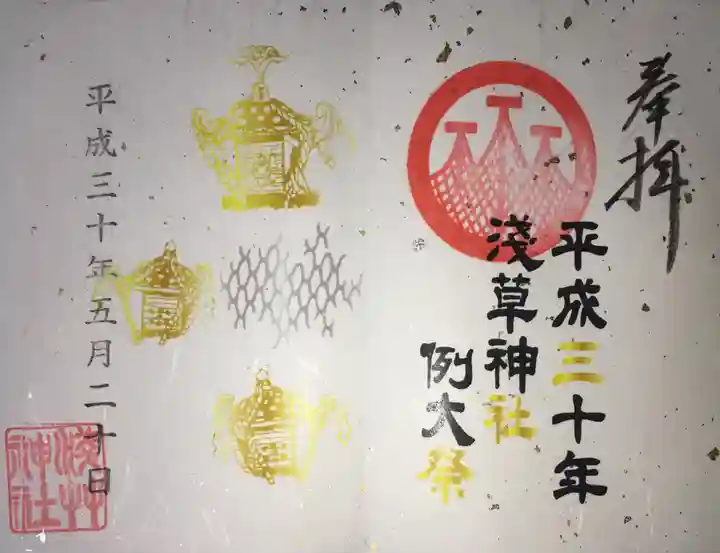 奉拝
平成三十年
淺草神社
例大祭
平成三十年五月二十日
淺草
神社